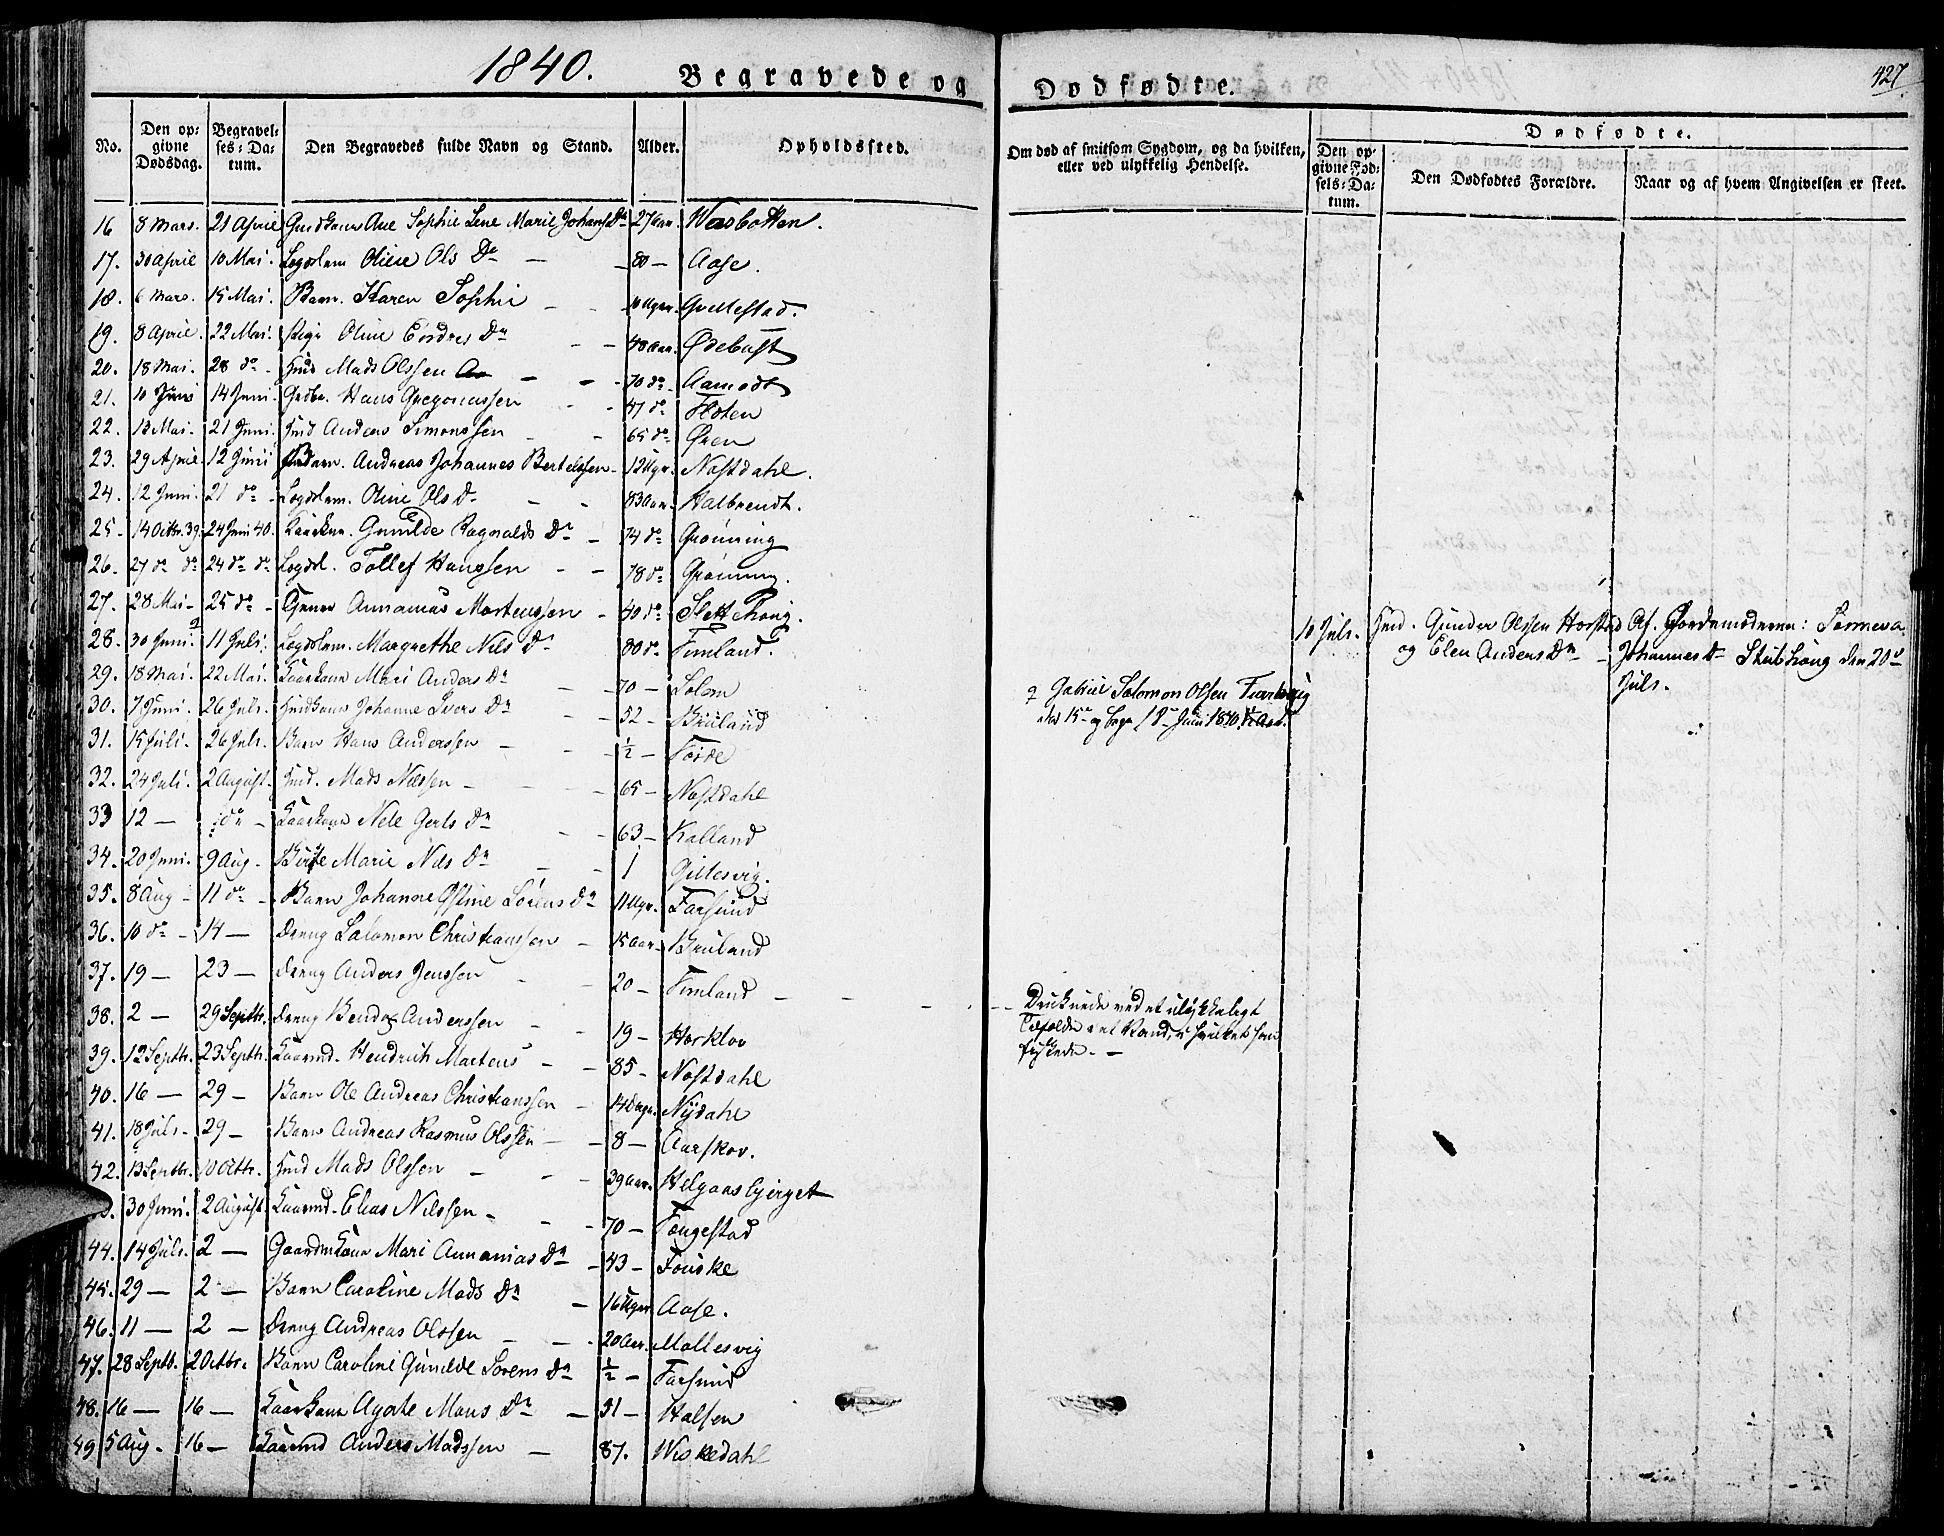 1840. Begravede og
Dødfødte. 427
No. Den opgivne Dødsdag. Begravelses-Datum. Den Begravedes fulde Navn og Stand. Alder. Opholdsted.
Om død af smitsom Sygdom, og da hvilken, eller ved ulykkelig Hendelse. Dødfødte. Den opgivne Fødsels-Datum. Den Dødfødtes Forældre. Naar og af hvem Angivelsen er skeet.
16 8 Mars. 21 April Ane Sophie Lene Marie Johans Dr 27 Aar. Wasbotten.
17. 30 April 10 Mai. Legdslem Oline Ols Dr — 80 — Aase.
18. 6 Mars. 15 Mai. Barn. Karen Sophie — Uger
19. 8 April. 22 Mai. Pige Oline Endres Dr — 48 Aar. Ødebust
20. 18 Mai. 28 do - Hmd Mads Olssen — 70 do - Aamodt
21. 10 Juni 14 Juni. Hans Gregoriussen — 47 do Floten
22. 13 Mai. 21 Juni. Hmd Anders Simonssen — 65 do Øren
23. 29 April 12 Juni Andreas Johannes Bertelssen — 12 Uger. Nostdahl.
24. 12 Juni. 21 do - Legdslem. Oline Ols Dr — 83 Aar. Halbrendt.
25. 14 Octbr. 39. 24 Juni 40. Kaarkone. Gunilde Ragnalds Dr — 74 do Grønning
26. 27 do do 24 do do Legdsl. Tollef Hanssen — 78 do Grønning.
27. 28 Mai - 25 do - Annanias Mortenssen — 40 do
28. 30 Juni 11 Juli. Legdslem. Margrethe Nils Dr 80 do Fimland.
10 Juli. Hmd. Gunder Olssen Horstad Af Jordemoderen:
og Elen Anders Dr — Johannes Dr den 20de
Juli.
29. 18 Mai. 22 Mai. Kaarkone Mari Anders Dr — 70 — Solem
30. 7 Juni. 26 Juli. Huskone Johanne Ivers Dr — 52 — Bruland
31. 15 Juli. 26 Juli. Barn Hans Anderssen — 1/2 — Førde
Gabriel Salomon Olsen
15de og begr. 18 Juni 1840
32. 24 Juli. 2 August. Hmd. Mads Nilssen — 65 — Nostdahl
33 12 — do - Kaarkone Nele Gerts Dr — 63 — Kalland
34. 20 Juni. 9 Aug - Birte Marie Nils Dr — 1 Gillesvig.
35. 8 Aug - 11 do - Barn Johanne Sørens Dr 11 Uger. Farsund
36. 10 do - 14 — Dreng Salomon Christianssen — 15 Aar - Bruland
37. 19 — 23 — Dreng Anders Jenssen — 20 — Fimland — — —
38. 2 — 29 Septbr. Dreng Anderssen — 19 — Horklov
Druknede ved et ulykkeligt
Tilfælde i et Vand, i hvilket han
fiskede. —
39. 12 Septbr. 23 Septbr. Kaarmd. Hendrich Martens — 85 - Nostdahl
40. 16 — 29 — Barn Ole Andreas Christianssen — 14 Dage. Nydahl
41. 18 Juli - 29 — Barn Andreas Rasmus Olssen — 8 — Aarskov.
42. 13 Septbr. 10 Octbr. Hmd Mads Olssen — 39 Aar. Helgaasbjerget
30 Juni. 2 August. Kaarmd. Elias Nilssen — 70 — Tengestad
44. 14 Juli. 2 — Gaardmkone Mari Annanias Dr — 43 — Fouske
45. 29 — 2 — Barn Caroline Mads Dr — 16 Uger Aase.
46. 11 — 2 — Dreng Andreas Olssen — 20 Aar. Mollesvig
47. 28 Septb. 2 Octbr. Barn Caroline Gunilde Sørens Dr 1/2 — Farsund
48. 16 — 16 — Kaarkone Agate Mons Dr — 51 — Halsen
49 5 Aug. 16 — Kaarmd Anders Madssen — 87. Wiskedahl